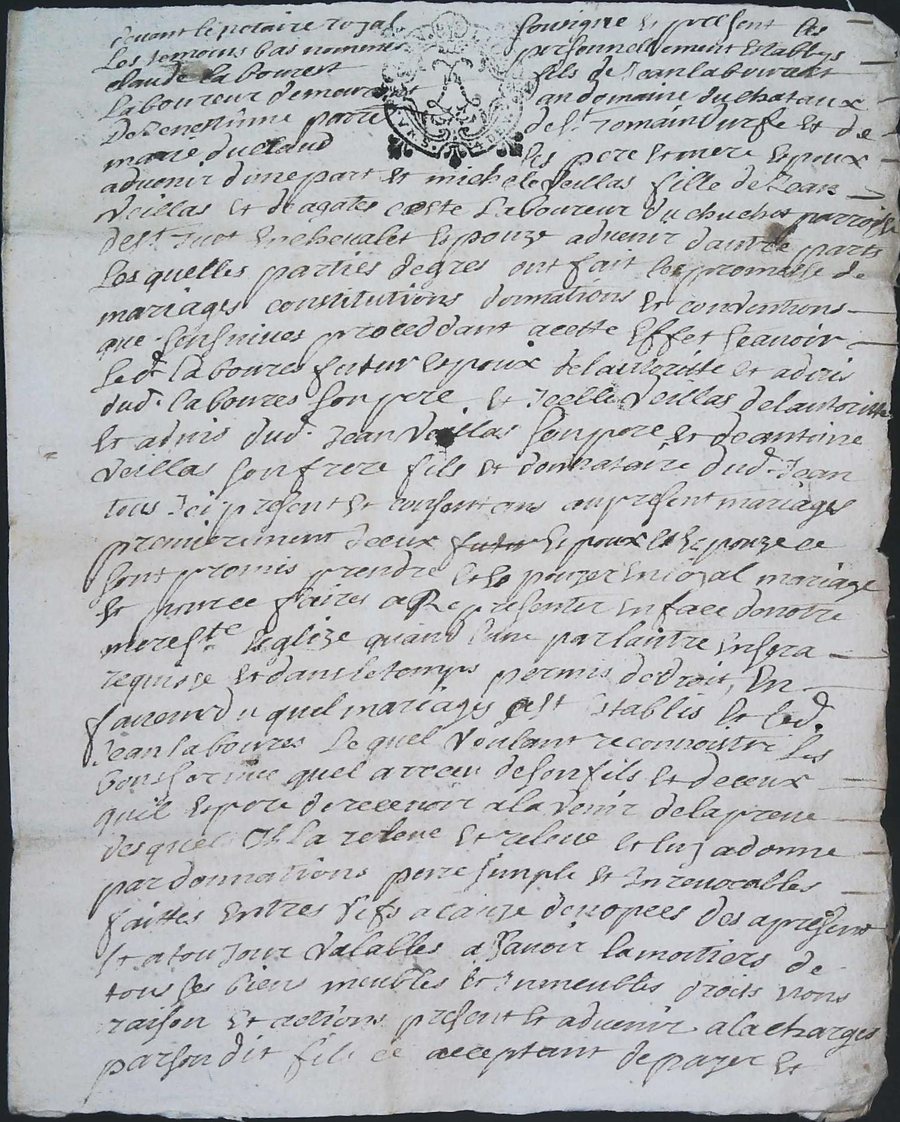 devant le notaire royal soubsigne et present les
Les temoins bas nommes personnellement Etablys
claude laboures fils de Jean laboures
Laboureur demeurant au domaine du chataux
De genetinne parre de St Romain Durfe et de
marie duclaud ses pere et mere Espoux
advenir dune part et michele Veillas fille de Jean
Veillas et de agates coste Laboureur du chuchot parroisse
de St Just En chevalet Espouze advenir dautre parts
Les quelles parties de gres ont fait les promesse de
mariages constitutions donnations et conventions
que sensuives proceddant a cette Effet scavoir
Le d. laboures futur Espoux de lautoritte et advis
dud. laboures son pere et Icelle Veillas de lautoritte
Et advis dud. Jean Veillas son pere et de antoine
Veillas son frere fils et donnataire dud. Jean
tous Ici present et consentens au present mariages
premierement Iceux futur Espoux et Espouze ce
sont promis prendre et Espouzer En loyal mariage
Et pour ce faires ce Representer En face de notre
mere Ste Eglize quand lune par lautre En sera
requise et dans le temps permis de droit, En
faveur du quel mariages cest Establis et led.
Jean laboures Lequel Voulant reconnoistre Les
bons service quel a receu de son fils et de ceux
quil Espere de recevoir a la venir de la preuve
desquel Il la releve et releve et luy a donne
par donnations pure simple et Irrevocables
faittes Entres vifs a cauze de nopces des a present
Et a toujour valables a scavoir la moitiers de
tous ses bien meubles et Immeubles droits noms
raison et actions present et advenir a la charges
par son dit fils ce acceptant de payer et